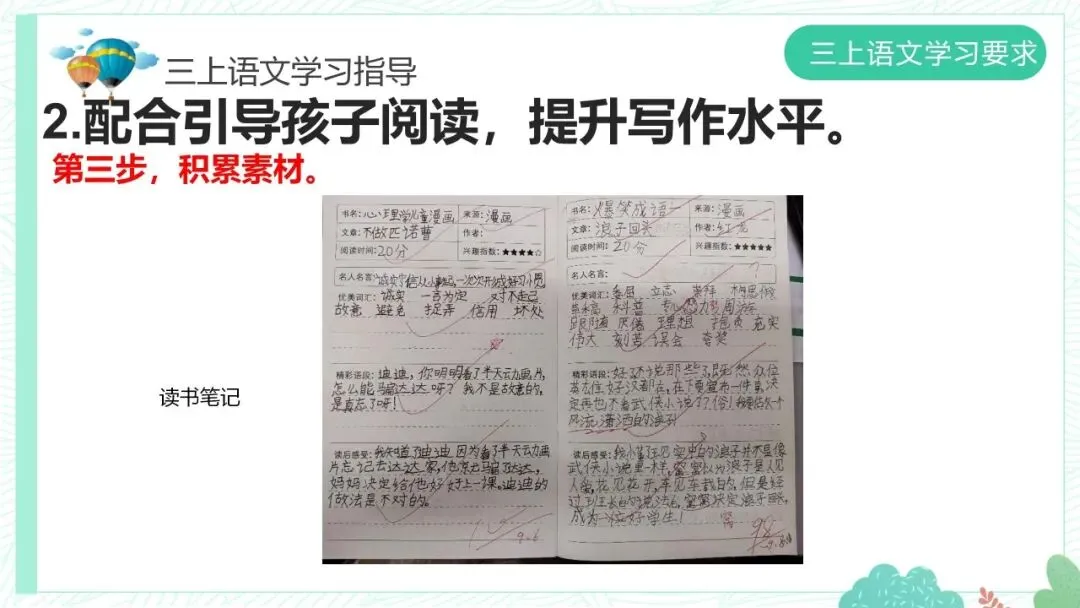 三上语文学习要求
三上语文学习指导
2.配合引导孩子阅读，提升写作水平。
第三步，积累素材。
读书笔记
书名：心理学儿童漫画
来源：漫画
文章：不做匹诺曹
作者：
阅读时间：20分
兴趣指数：★★★★☆
名人名言：
优美词汇：诚实 一言为定 对不起
故意 避免 捉弄 信用 坏处
精彩语段：迪迪，你明明看了半天动画片，
怎么能骗达达呀？我不是故意的，
是真忘了呀！
读后感受：我知道了迪迪因为看了半天动画
片忘记去达达家，他还骗达达，
妈妈决定给他好好上一课。迪迪的
做法是不对的。
9.6
书名：爆笑成语
来源：漫画
文章：浪子回头
作者：红龙
阅读时间：20分
兴趣指数：★★★★★
名人名言：
优美词汇：委屈 立志 崇拜
科普 周游
理想 抱负 充实
伟大 刻苦 误会 夸奖
精彩语段：好了不说那些了，既然众位
英雄好汉都在，在下要宣布一件事，决
定再也不看武侠小说了
风流潇洒的浪子！
读后感受：
武侠小说里一样，
人爱，花见花开，车见车载的，但是经
过班主长的说法后，
成为一位好学生！
98